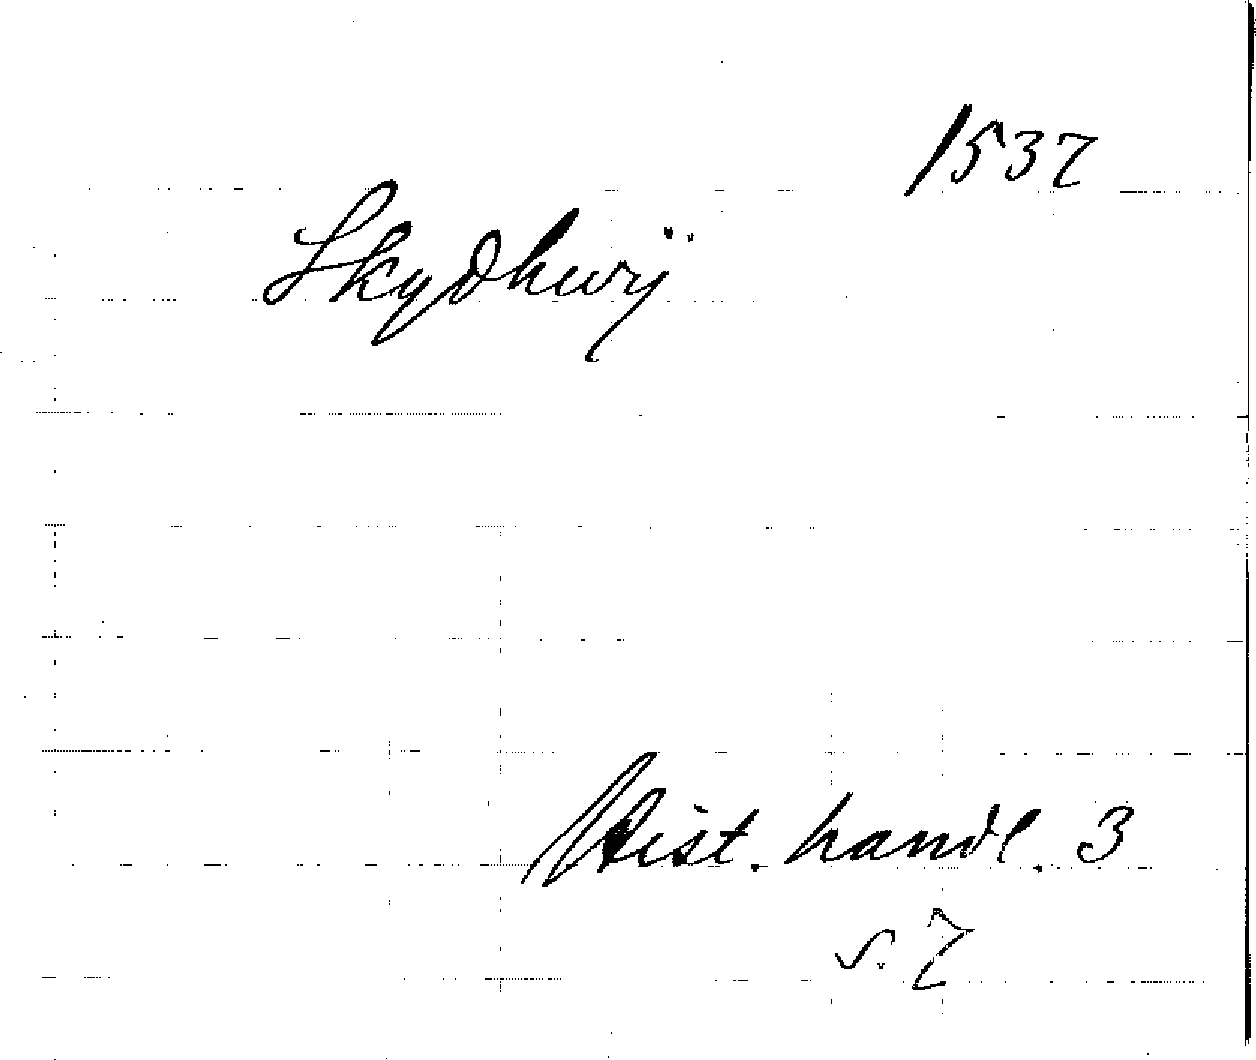 1537
Skydhwij
Hist. handl. 3
s. 7